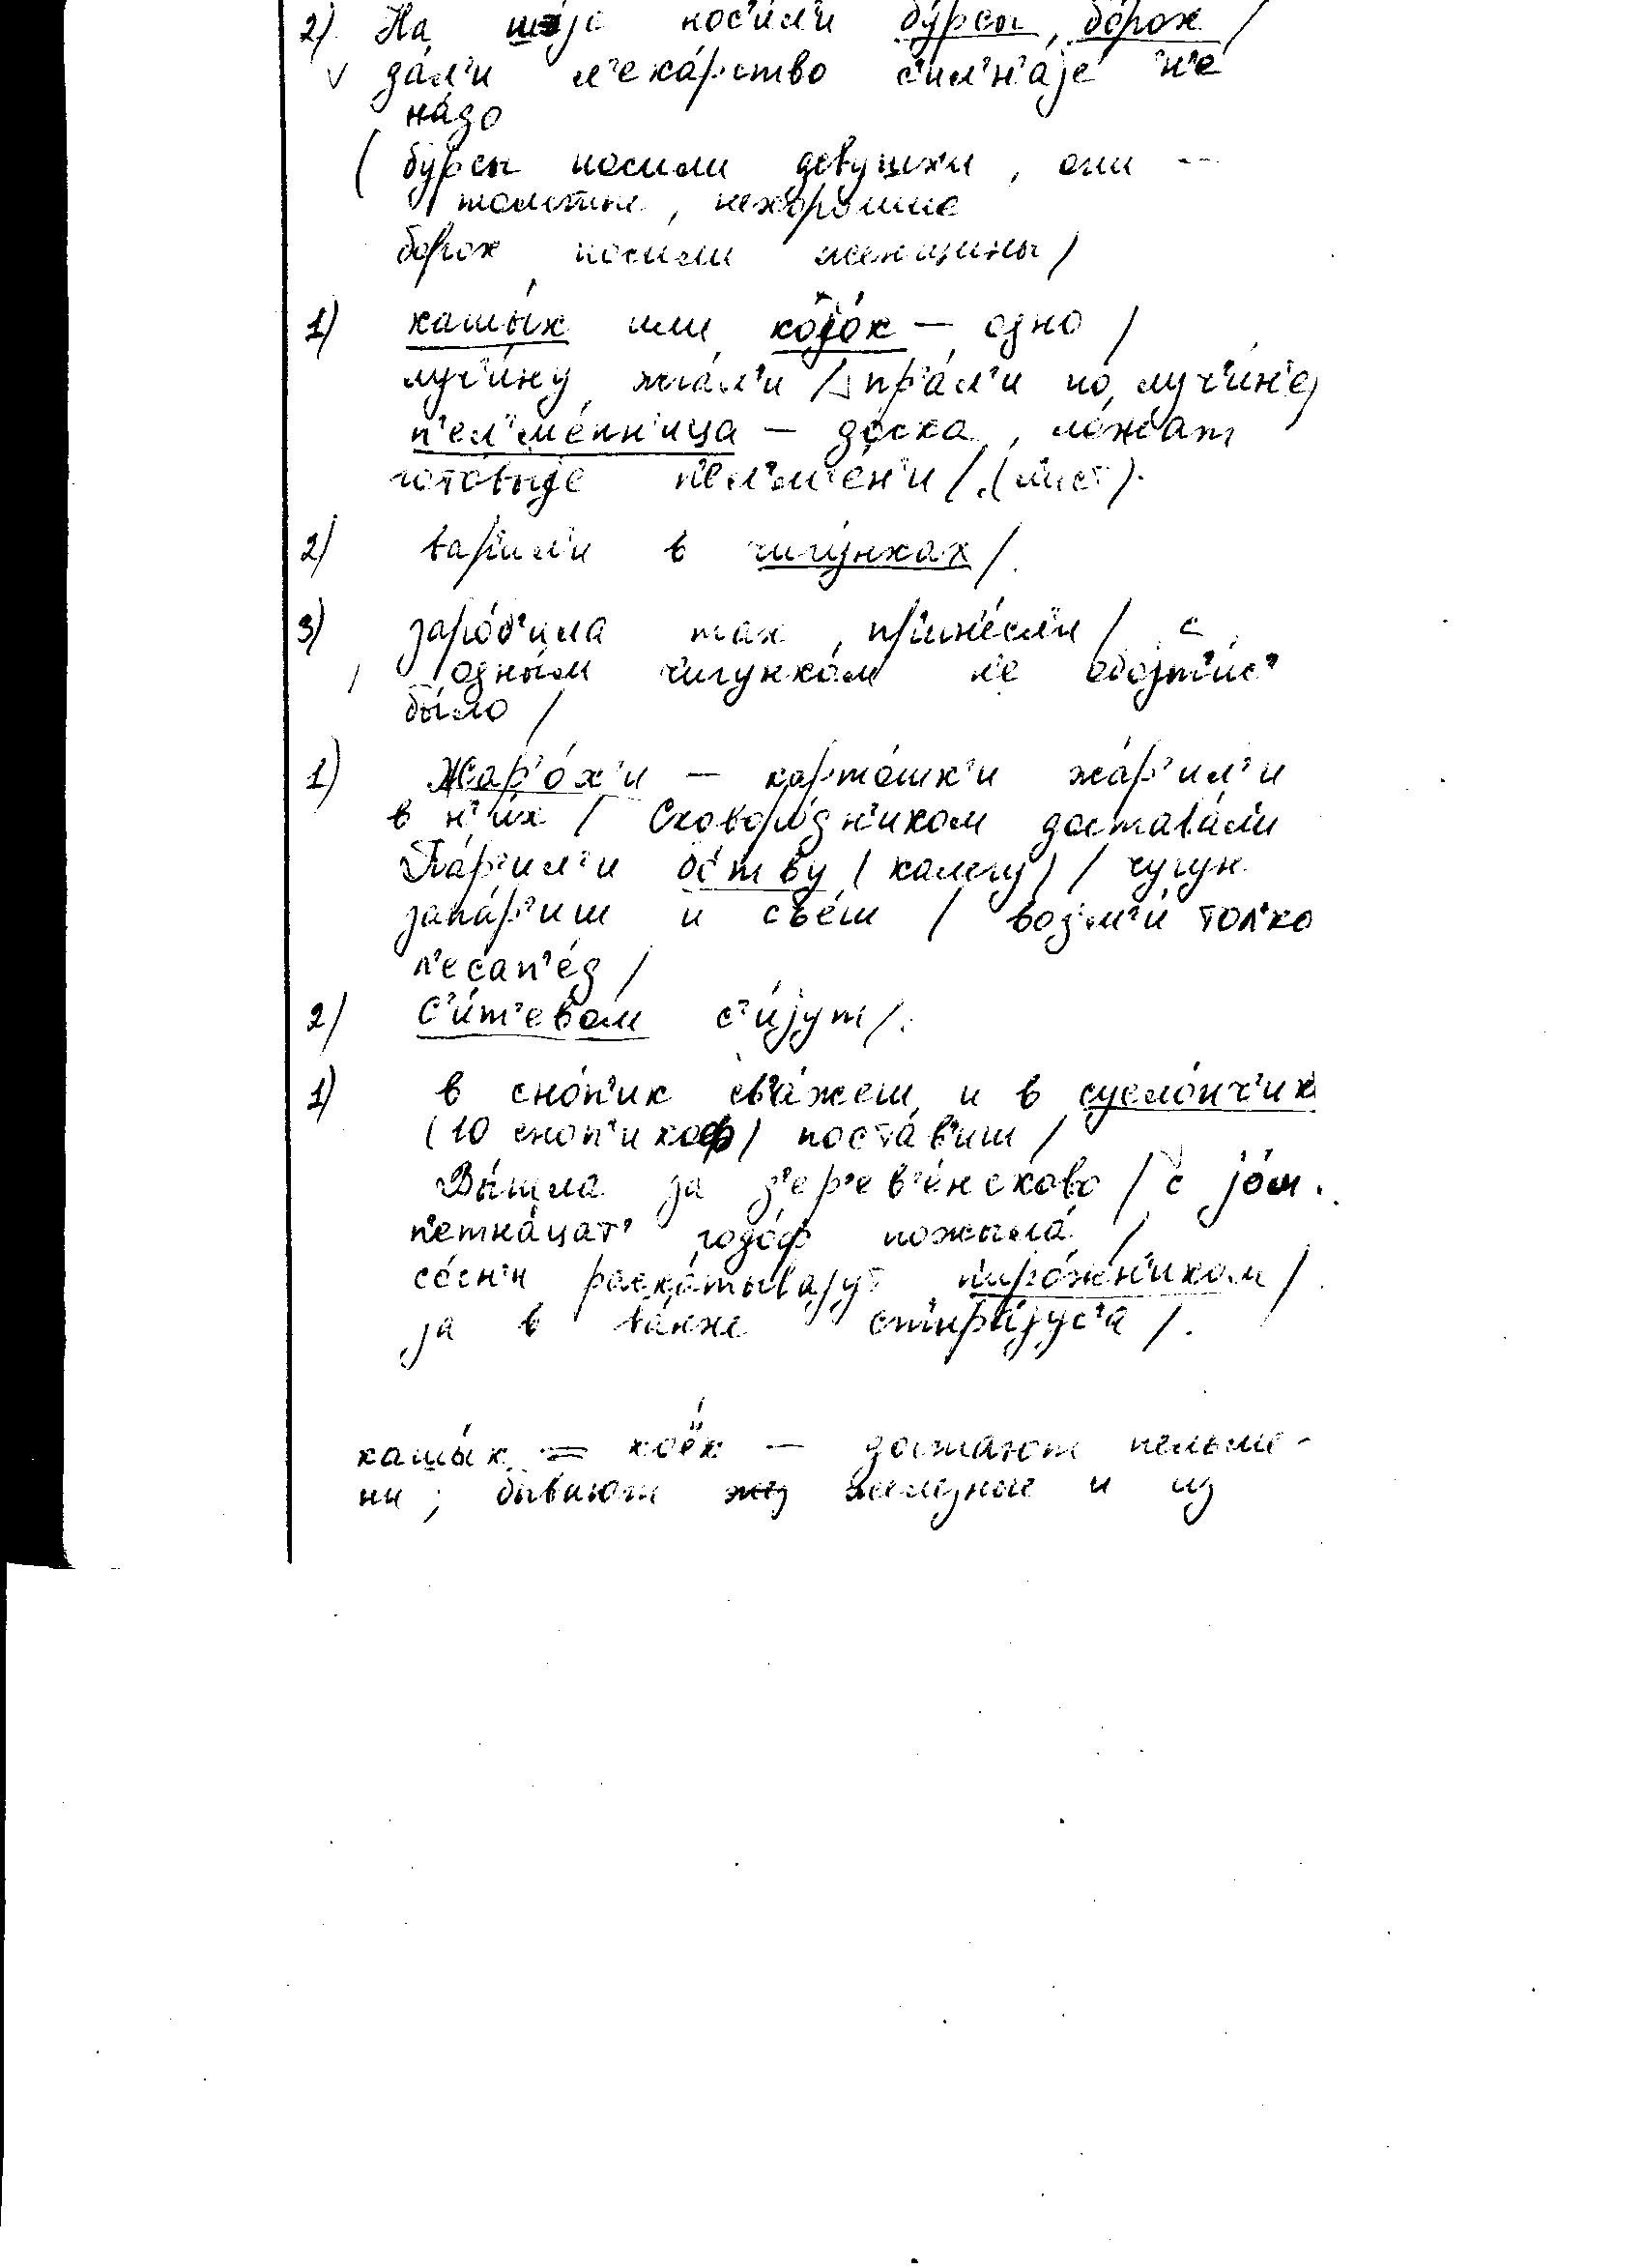 2) На шэjе нос'ил'и бу́рсы, бо́рок /
дал'и л'ека́рство с'ил'н'аjе н'е
на́до
( бу́рсы носили девушки, они --
толстые, нехорошие
борок носили женщины /
1) кашы́к или коjо́к — одно /
луч'и́ну жгл'и / пр'а́л'и по луч'ин'е /
п'ел'ме́нн'ица — доска, ло́жат
гото́выjе п'ел'м'е́н'и / (лист).
2) вар'ил'и в чигу́нках /
3) заро́д'ила так, пр'ин'есл'и / с
одны́м чигунко́м не обоjт'и́с'
было /
1) Жар'о́х'и — карто́шк'и жа́р'ил'и
в н'их / Сковоро́дн'иком доставал'и
Па́р'ил'и бо́тву ( калегу ) / чугун
запа́р'иш и сйе́ш / воз'м'и́ тол'ко
л'есап'е́д /
2) С'и́т'евом с'и́jут /.
1) в сно́п'ик св'а́жеш и в суслончик
(10 сноп'икоф) поста́в'иш /
Вы́шла за д'ер'ев'е́нсково / с jо́м.
п'етна́цат' годо́ф пожыла́ /
со́сн'и раска́тываjут п'иро́жн'иком /
jа в ва́нне ст'ира́jус'а /.
кашы́к = коёк — достают пельме-
ни; бывают жез железные и из